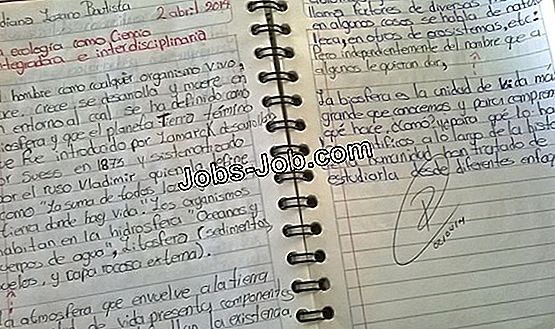 diana Lozano Bautista
2 abril 2014
ecología como Ciencia
integradora e interdisciplinaria
hombre como cualquier organismo vivo,
ace. Crece, se desarrolla y muere en
entorno al cual se ha definido como
iosfera y que el planeta Tierra término
fue introducido por Lamarck desarrollar
suess en 1875 y sistematizado
por el ruso Vladimir quien define
como "La suma de todos los
tierra donde hay vida". Los organismos
habitan en la hidrosfera "Oceanos y
cuerpos de agua", litosfera (sedimentos
uelos, y capa rocosa externa).
la atmosfera que envuelve a la tierra
de vida presenta components
la existencia
llama factores de diversas
en algunos casos se habla de natu
leza, en otros de ecosistemas, etc.
Pero independientemente del nombre que a
algunos le quieran dar,
la biosfera es la unidad de vida ma
grande que conocemos y para compren
qué hace. ¿Como? y para qué lo ha
científicos a lo largo de la hist
humanidad han tratado de
estudiarla desde diferentes enfoq
Jobs-Job.com